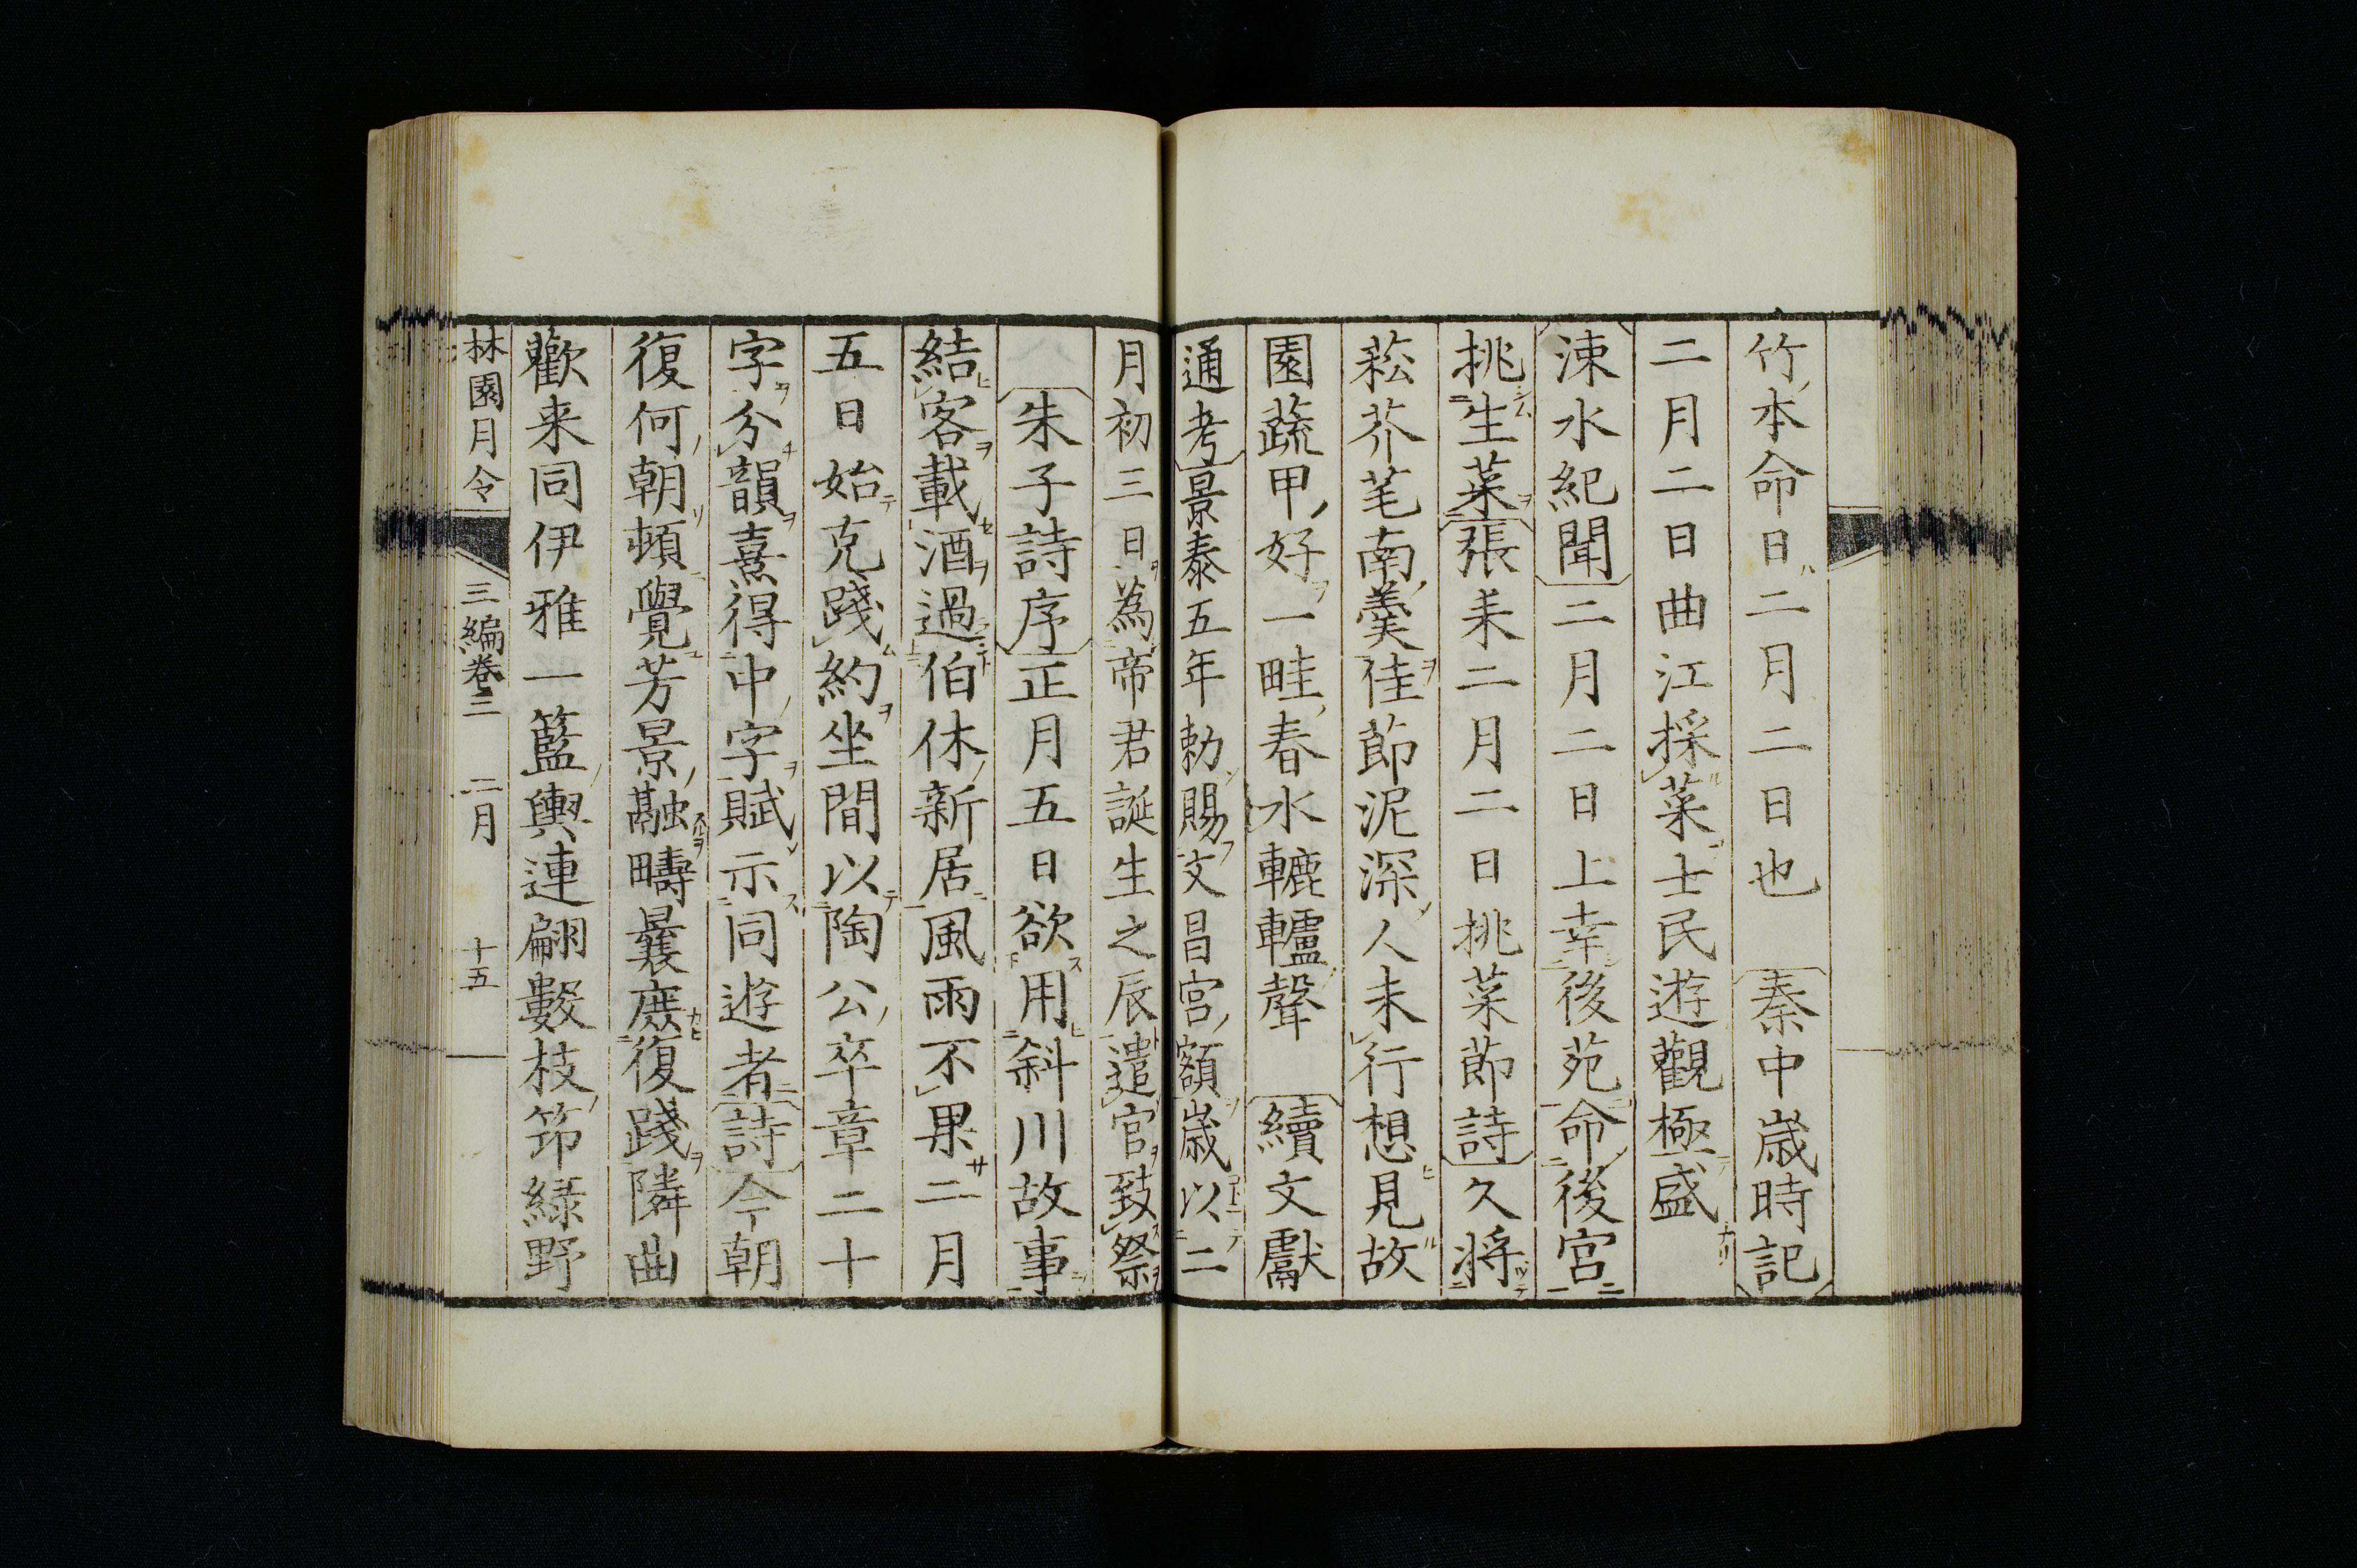 竹本命日二月二日也　秦中歳時記
二月二日曲江採菜士民遊觀極盛
涑水紀聞二月二日上幸後苑命後宮
挑生菜張耒二月二日挑菜節詩久將
菘芥芼南羹佳節泥深人未行想見故
園蔬甲好一畦春水轆轤聲　續文獻
通考景泰五年勅賜文昌宮額歳以二
月初三日為帝君誕生之辰遣官致祭
朱子詩序正月五日欲用斜川故事
結客載酒過伯休新居風雨不果二月
五日始克踐約坐間以陶公卒章二十
字分韻熹得中字賦示同遊者詩今朝
復何朝頓覺芳景融疇曩庶復踐隣曲
歡来同伊雅一籃輿連翩數枝筇緑野
林園月令　三編卷三　二月　十五